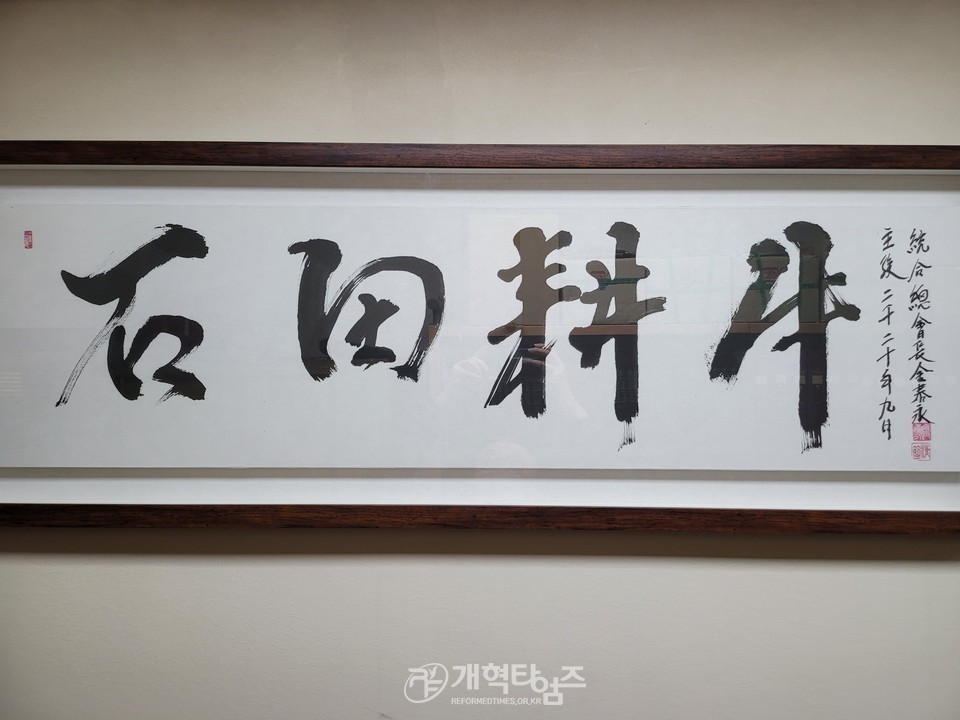 石田耕牛
主後二千二十年九月
統合總會長金泰永
개혁타임즈
REFORMEDTIMES.OR.KR